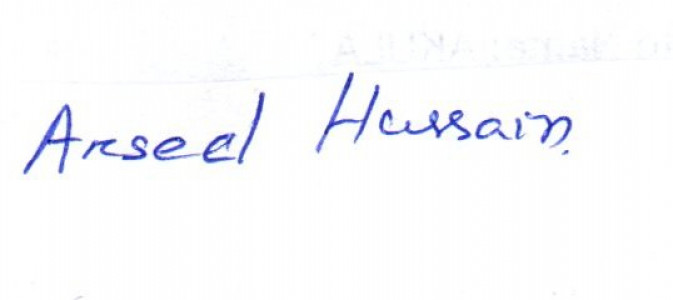 Arseed Hussain.